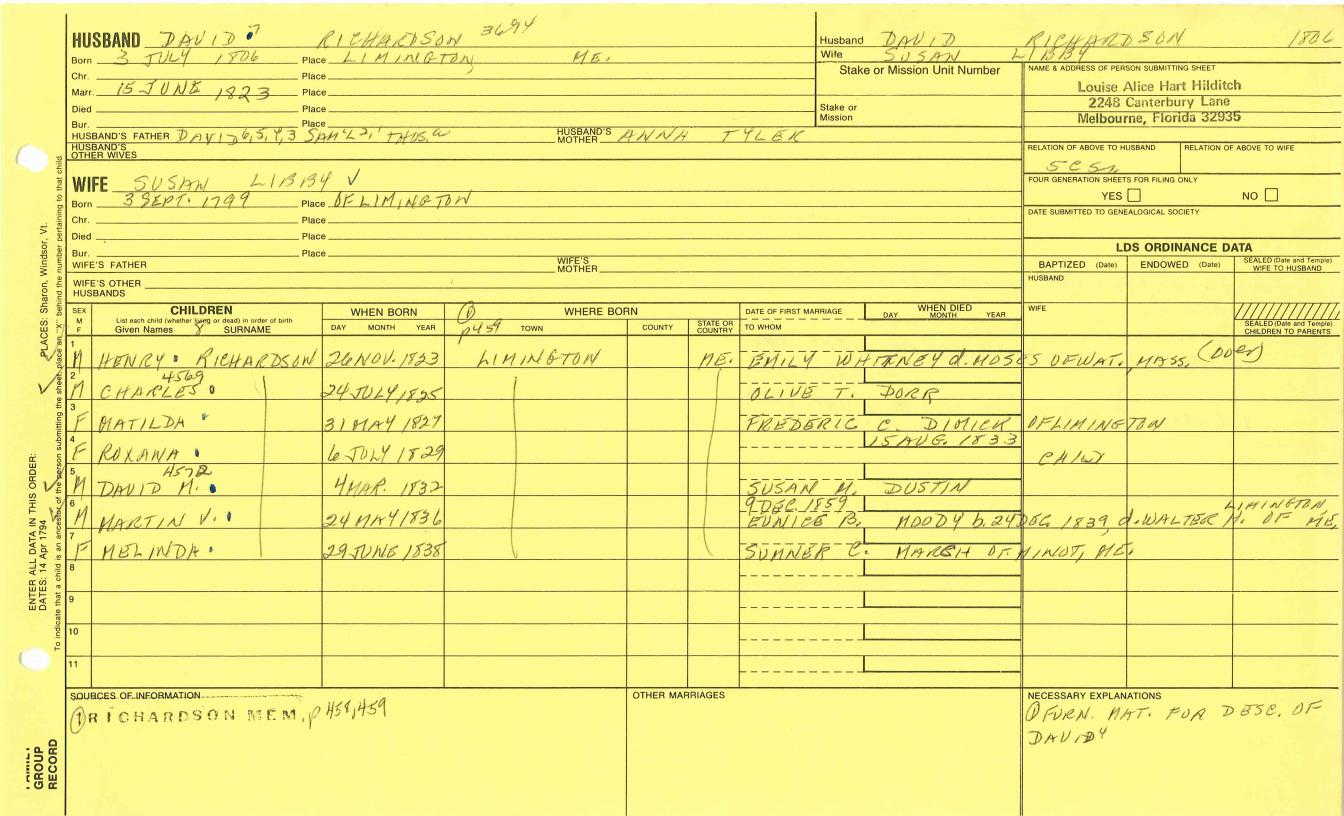 HUSBAND DAVID 7 RICHARDSON 3694
Born 3 JULY 1806 Place LIMINGTON, ME.
Chr. Place
Marr. 15 JUNE 1823 Place
Died Place
Bur. Place
HUSBAND'S FATHER DAVID 6,5,4,3 SAM'L 2, THOS. HUSBAND'S MOTHER ANNA TYLER
HUSBAND'S OTHER WIVES
Husband DAVID RICHARDSON 1806
Wife SUSAN LIBBY
Stake or Mission Unit Number
Stake or Mission
NAME & ADDRESS OF PERSON SUBMITTING SHEET
Louise Alice Hart Hilditch
2248 Canterbury Lane
Melbourne, Florida 32935
RELATION OF ABOVE TO HUSBAND RELATION OF ABOVE TO WIFE
FOUR GENERATION SHEETS FOR FILING ONLY
YES NO
DATE SUBMITTED TO GENEALOGICAL SOCIETY
WIFE SUSAN LIBBY ✓
Born 3 SEPT. 1799 Place OF LIMINGTON
Chr. Place
Died Place
Bur. Place
WIFE'S FATHER WIFE'S MOTHER
WIFE'S OTHER HUSBANDS
LDS ORDINANCE DATA
BAPTIZED (Date) ENDOWED (Date) SEALED (Date and Temple) WIFE TO HUSBAND
HUSBAND
WIFE
SEALED (Date and Temple) CHILDREN TO PARENTS
SEX M F
CHILDREN
List each child (whether living or dead) in order of birth
Given Names 8 SURNAME
WHEN BORN
DAY MONTH YEAR
① p459
WHERE BORN
TOWN COUNTY STATE OR COUNTRY
DATE OF FIRST MARRIAGE
TO WHOM
WHEN DIED
DAY MONTH YEAR
1 M HENRY RICHARDSON 26 NOV. 1823 LIMINGTON ME. EMILY WHITNEY d. MOSES OF WAT., MASS. (OVER)
2 M CHARLES 4569 24 JULY 1825 OLIVE T. DORR
3 F MATILDA 31 MAY 1827 FREDERIC C. DIMICK OF LIMINGTON
4 F ROXANA 6 JULY 1829 15 AUG. 1833
5 M DAVID M. 4572 4 MAR. 1832 SUSAN M. DUSTIN
6 M MARTIN V. 24 MAY 1836 9 DEC 1859 EUNICE B. MOODY b. 24 DEC 1839, d. WALTER H. OF LIMINGTON, ME.
7 F MELINDA 29 JUNE 1838 SUMNER C. MARSH OF MINOT, ME.
8
9
10
11
SOURCES OF INFORMATION
① RICHARDSON MEM, p 458,459
OTHER MARRIAGES
NECESSARY EXPLANATIONS
① FURN. MAT. FOR DESC. OF
DAVID 4
ENTER ALL DATA IN THIS ORDER:
DATES: 14 Apr 1794 PLACES: Sharon, Windsor, Vt.
To indicate that a child is an ancestor of the person submitting the sheet, place an "X" behind the number pertaining to that child.
FAMILY GROUP RECORD